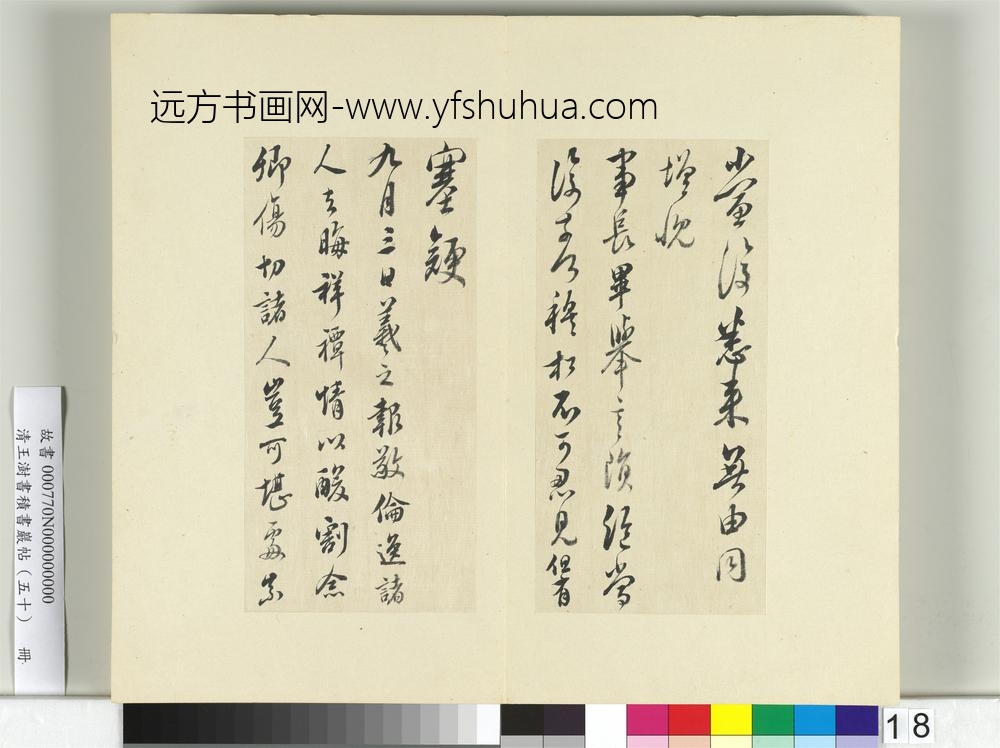 远方书画网-www.yfshuhua.com
復悉來無由同
增慨
事長畢舉言隕絕當
復穆松不可忍見但有
塞鯁
九月三日羲之報敬倫遮諸
人去晦祥禫情以酸割念
卿傷切諸人豈可堪處奈
故書 000770N000000000
清王澍書積書巖帖（五十） 冊
18